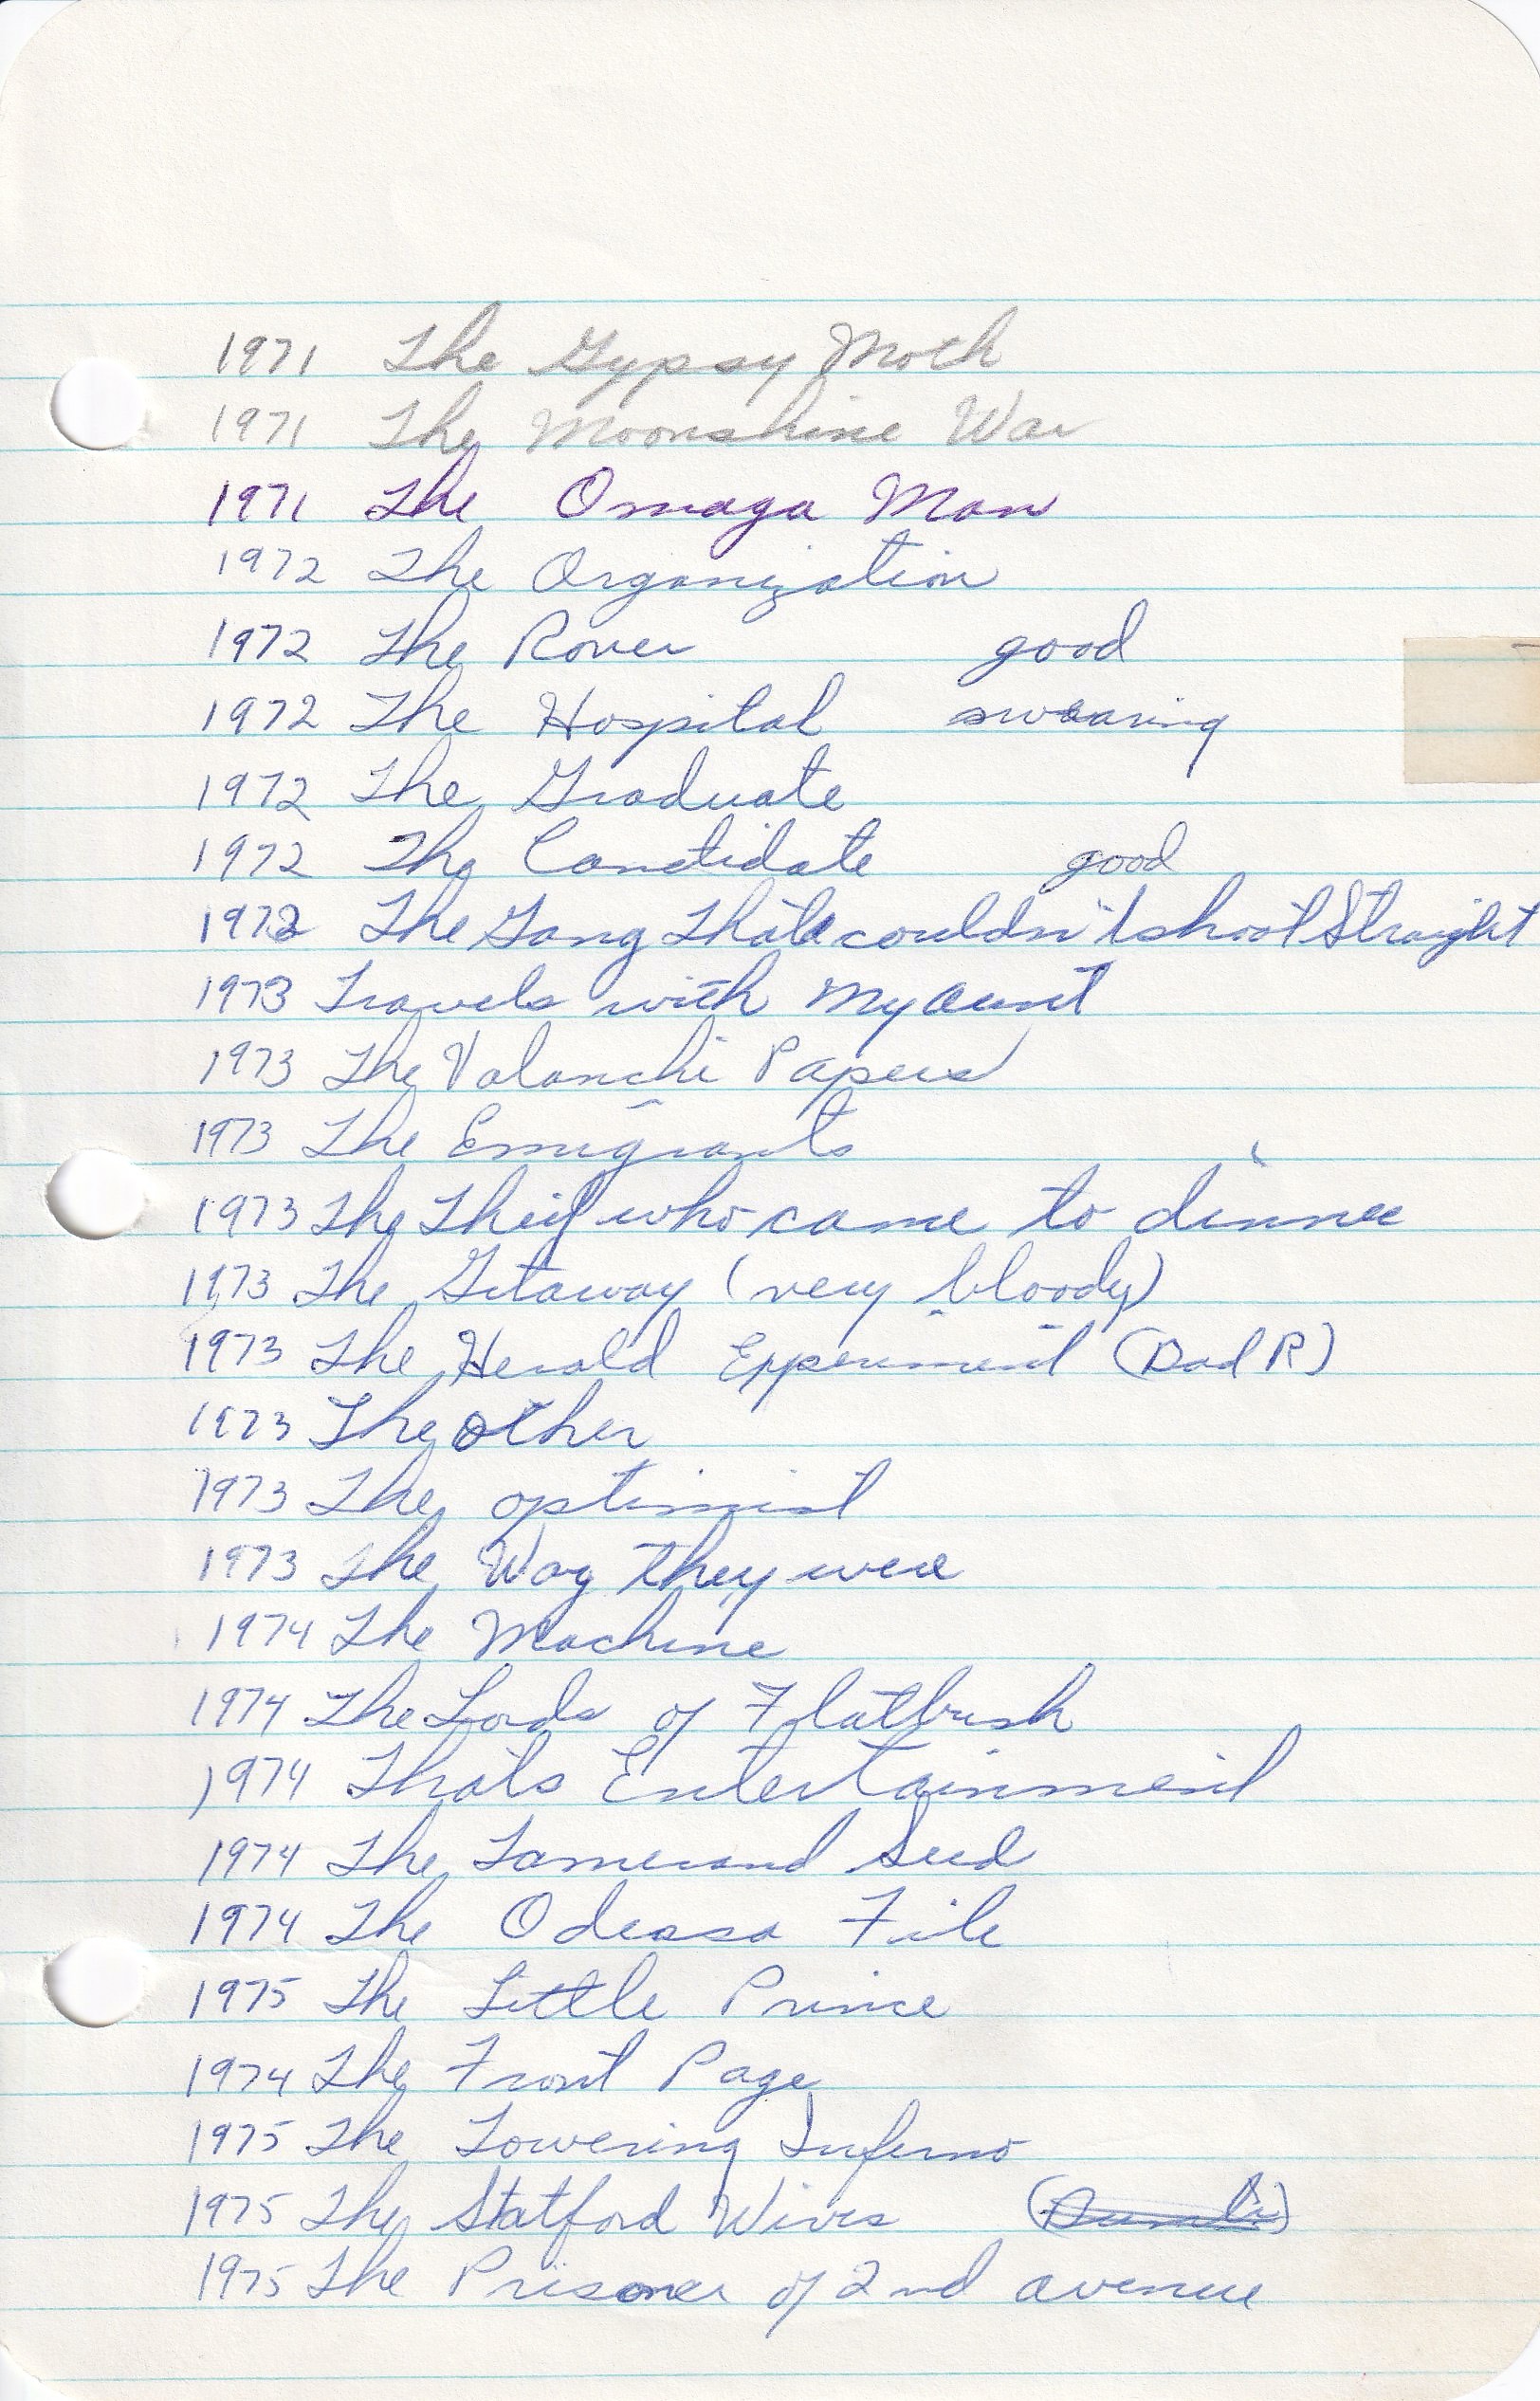 1971 The Gypsy Moth
1971 The Moonshine War
1971 The Omaga Man
1972 The Organization
1972 The Rover good
1972 The Hospital swearing
1972 The Graduate
1972 The Candidate good
1972 The Gang That couldn't shoot Straight
1973 Travels with My Aunt
1973 The Valanchi Papers
1973 The Emigrants
1973 The Theif who came to dinner
1973 The Getaway (very bloody)
1973 The Herald Epperiment (Dad R)
1973 The Other
1973 The optimist
1973 The Way they were
1974 The Machine
1974 The Lords of Flatbush
1974 Thats Entertainment
1974 The Tamerand Seed
1974 The Odessa File
1975 The Little Prince
1974 The Front Page
1975 The Towering Inferno
1975 The Statford Wives
1975 The Prisoner of 2nd avenue